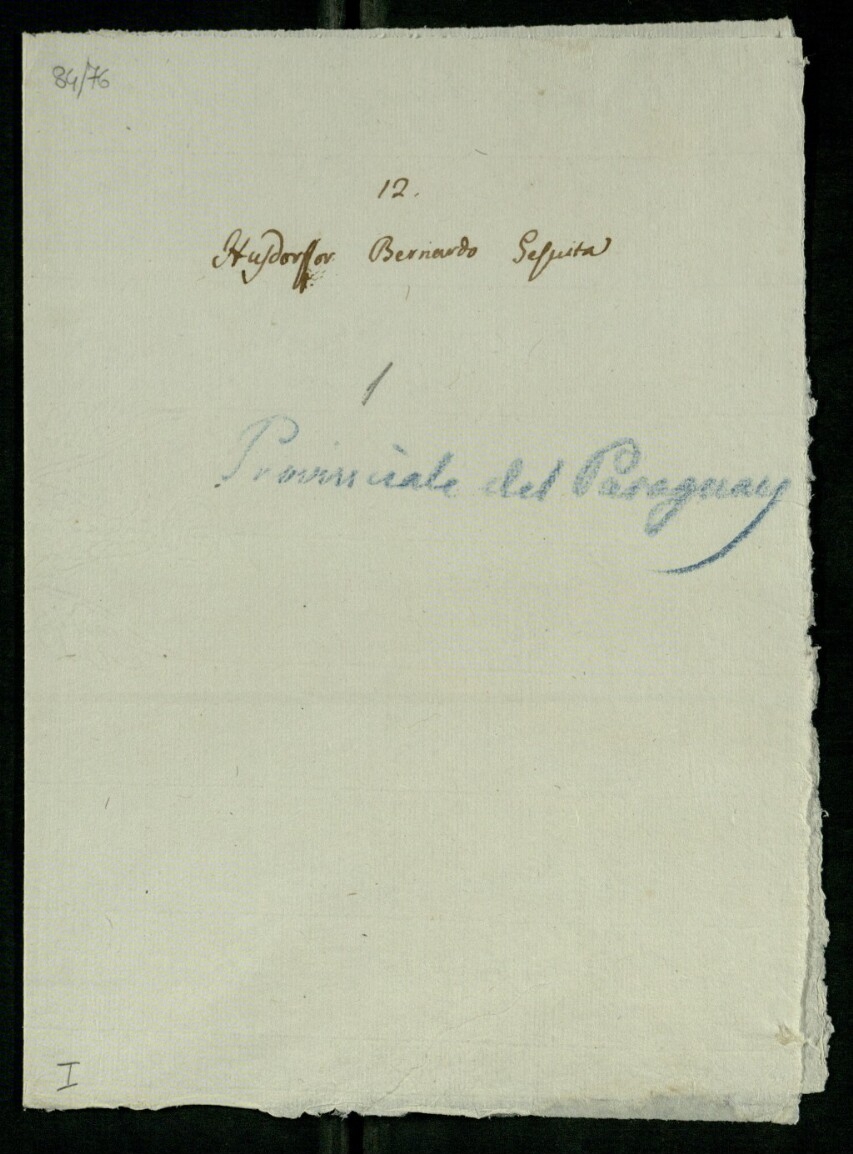 84/76
12.
Husdorffor Bernardo Gesuita
1
Provinciale del Paraguay
I